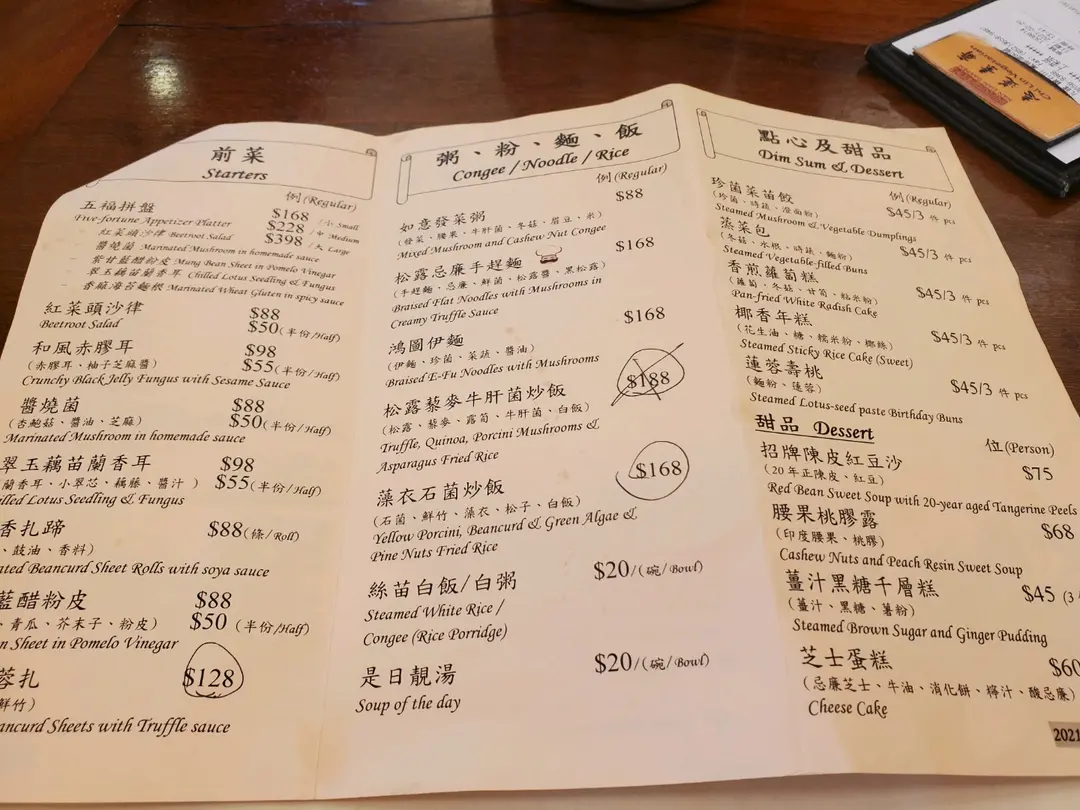 前菜
Starters
例(Regular)
五福拼盤 $168 /小 Small
Five-fortune Appetizer Platter $228 /中 Medium
紅菜頭沙律 Beetroot Salad $398 /大 Large
醬燒菌 Marinated Mushroom in homemade sauce
紫甘藍醋粉皮 Mung Bean Sheet in Pomelo Vinegar
翠玉藕苗蘭香耳 Chilled Lotus Seedling & Fungus
香辣海苔麵根 Marinated Wheat Gluten in spicy sauce
紅菜頭沙律 $88
Beetroot Salad $50(半份/Half)
和風赤膠耳 $98
(赤膠耳、柚子芝麻醬) $55(半份/Half)
Crunchy Black Jelly Fungus with Sesame Sauce
醬燒菌 $88
(杏鮑菇、醬油、芝麻) $50(半份/Half)
Marinated Mushroom in homemade sauce
翠玉藕苗蘭香耳 $98
蘭香耳、小翠芯、藕藤、醬汁 ) $55(半份/Half)
illed Lotus Seedling & Fungus
香扎蹄 $88(條/Roll)
、豉油、香料)
ated Beancurd Sheet Rolls with soya sauce
藍醋粉皮 $88
、青瓜、芥末子、粉皮) $50 (半份/Half)
n Sheet in Pomelo Vinegar
蓉扎 $128
鮮竹)
ancurd Sheets with Truffle sauce
粥、粉、麵、飯
Congee / Noodle / Rice
例(Regular)
如意發菜粥 $88
(發菜、腰果、牛肝菌、冬菇、眉豆、米)
Mixed Mushroom and Cashew Nut Congee
松露忌廉手趕麵 $168
(手趕麵、忌廉、鮮菌、松露醬、黑松露)
Braised Flat Noodles with Mushrooms in
Creamy Truffle Sauce
鴻圖伊麵 $168
(伊麵、珍菌、菜蔬、醬油)
Braised E-Fu Noodles with Mushrooms
松露藜麥牛肝菌炒飯 $188
(松露、藜麥、露筍、牛肝菌、白飯)
Truffle, Quinoa, Porcini Mushrooms &
Asparagus Fried Rice
藻衣石菌炒飯 $168
(石菌、鮮竹、藻衣、松子、白飯)
Yellow Porcini, Beancurd & Green Algae &
Pine Nuts Fried Rice
絲苗白飯/白粥 $20/(碗/Bowl)
Steamed White Rice /
Congee (Rice Porridge)
是日靚湯 $20/(碗/Bowl)
Soup of the day
點心及甜品
Dim Sum & Dessert
例(Regular)
珍菌菜苗餃 $45/3 件 pcs
(珍菌、時蔬、澄面粉)
Steamed Mushroom & Vegetable Dumplings
蒸菜包 $45/3 件 pcs
(冬菇、水根、時蔬、麵粉)
Steamed Vegetable-filled Buns
香煎蘿蔔糕 $45/3 件 pcs
(蘿蔔、冬菇、甘筍、粘米粉)
Pan-fried White Radish Cake
椰香年糕 $45/3 件 pcs
(花生油、糖、糯米粉、椰絲)
Steamed Sticky Rice Cake (Sweet)
蓮蓉壽桃 $45/3 件 pcs
(麵粉、蓮蓉)
Steamed Lotus-seed paste Birthday Buns
甜品 Dessert
位(Person)
招牌陳皮紅豆沙 $75
(20年正陳皮、紅豆)
Red Bean Sweet Soup with 20-year aged Tangerine Peels
腰果桃膠露 $68
(印度腰果、桃膠)
Cashew Nuts and Peach Resin Sweet Soup
薑汁黑糖千層糕 $45 (3
(薑汁、黑糖、薯粉)
Steamed Brown Sugar and Ginger Pudding
芝士蛋糕 $60
(忌廉芝士、牛油、消化餅、檸汁、酸忌廉)
Cheese Cake
2021